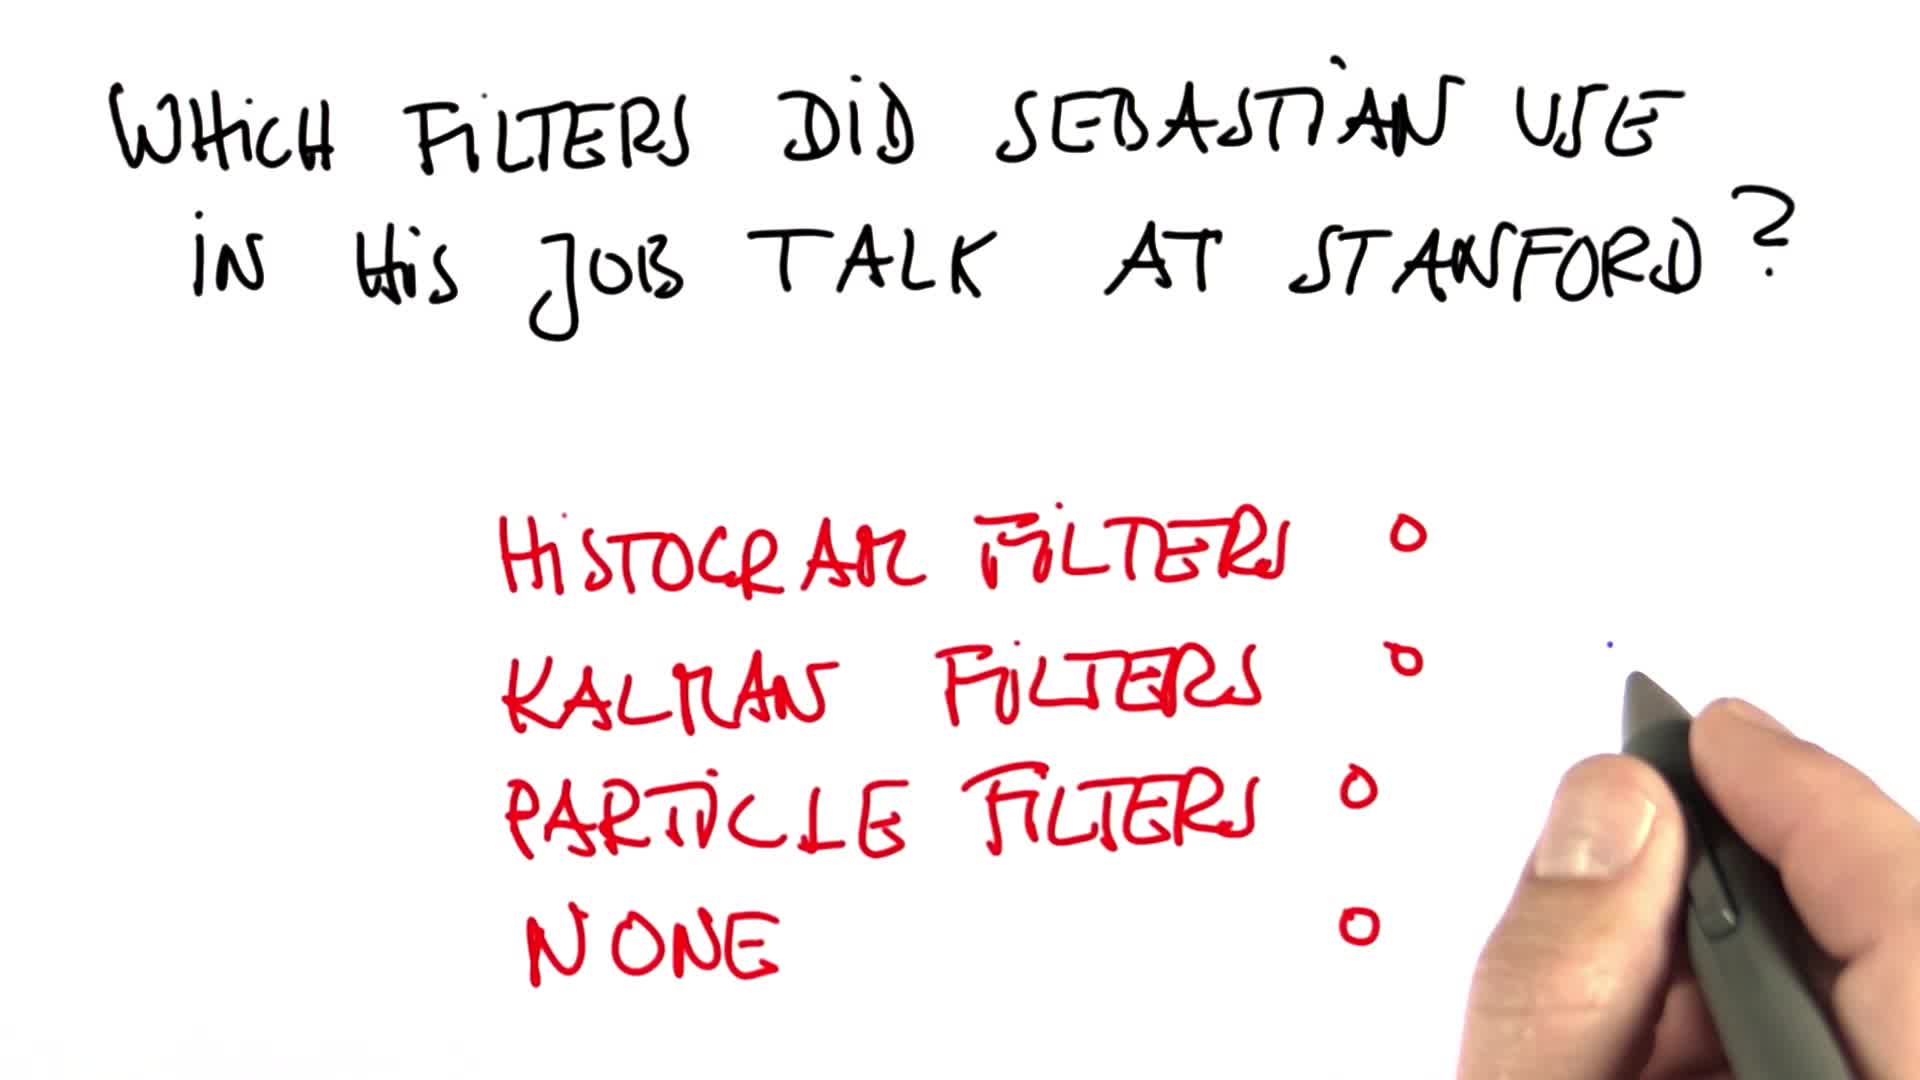 WHICH FILTERS DID SEBASTIAN USE
IN HIS JOB TALK AT STANFORD?
HISTOGRAM FILTERS O
KALMAN FILTERS O
PARTICLE FILTERS O
NONE O